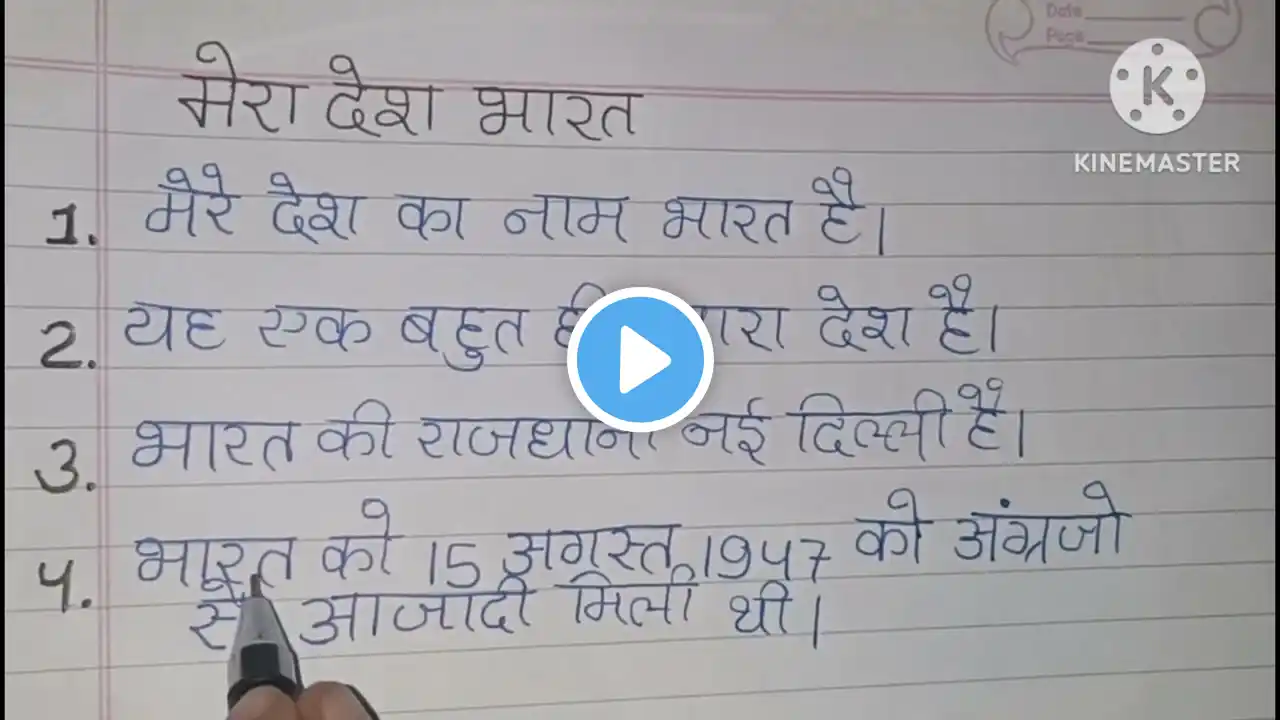 Date
Page
K
KINEMASTER
मेरा देश भारत
1. मेरे देश का नाम भारत है।
2. यह एक बहुत देश है।
3. भारत की नई दिल्ली है।
4. भारत को 15 अगस्त 1947 को अंग्रजो
से आजादी मिली थी।